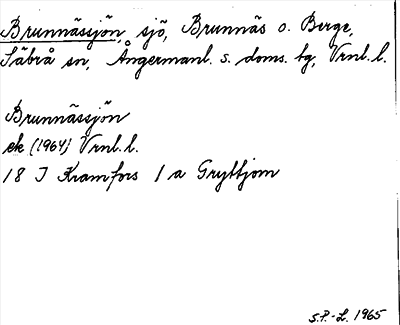 Brunnässjön, sjö, Brunnäs o. Berge,
Säbrå sn, Ångermanl. s. doms. tg, Vrnl. l.
Brunnässjön
ek (1964) Vrnl. l.
18 I Kramfors 1 a Gryttjom
S.P.-L. 1965